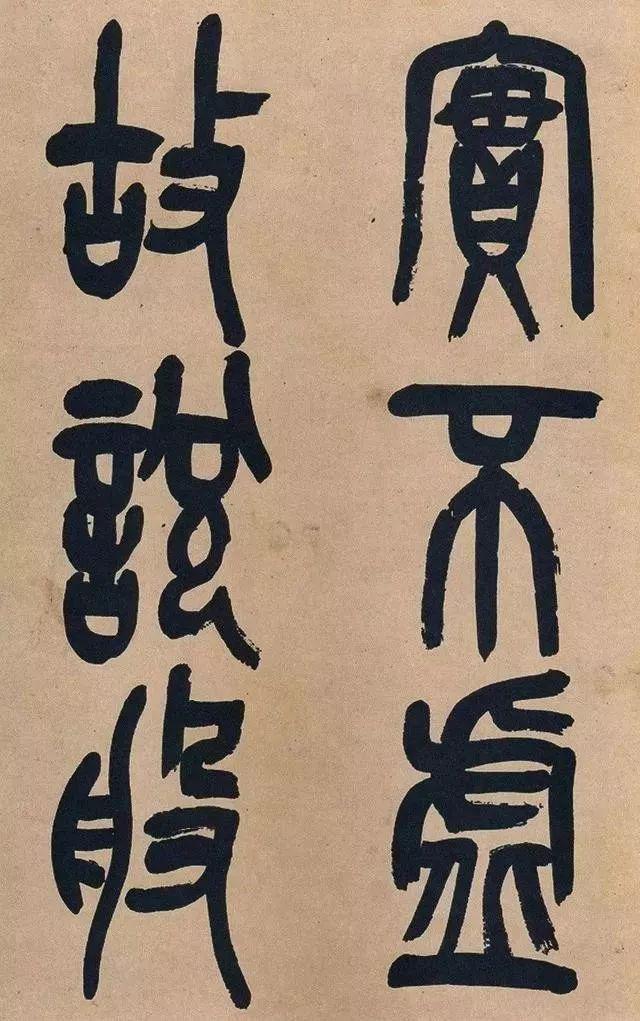 實不虛
故說般